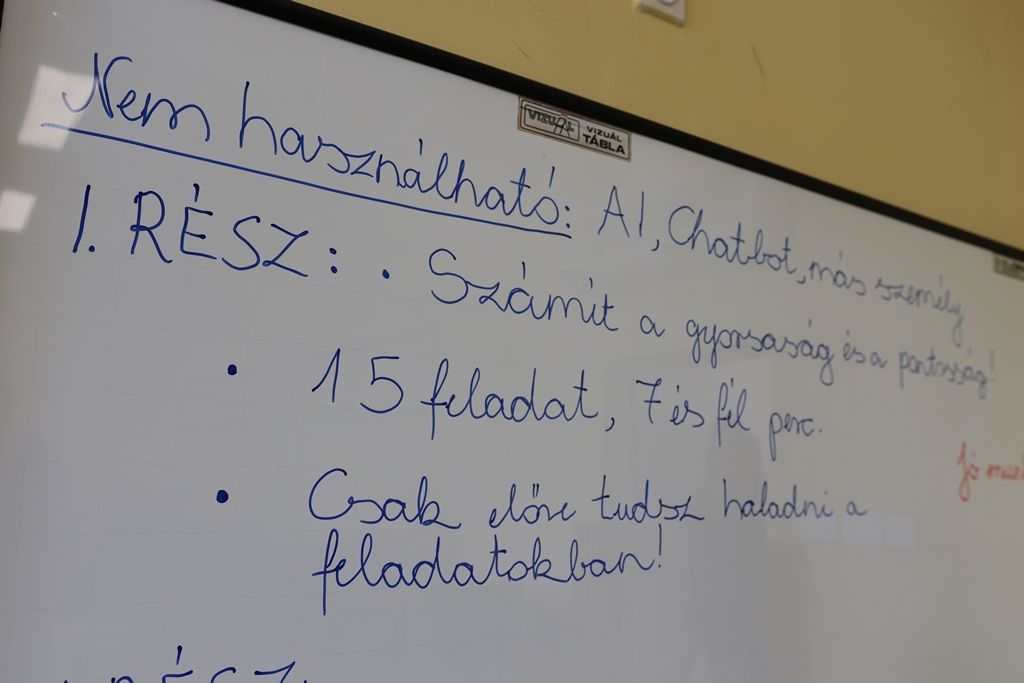 VIZUÁL
VIZUÁL
TÁBLA
Nem használható: AI, Chatbot, más személy
I. RÉSZ: • Számít a gyorsaság és a pontosság!
• 15 feladat, 7 és fél perc.
Jó
• Csak előre tudsz haladni a
feladatokban!
RÉSZ: